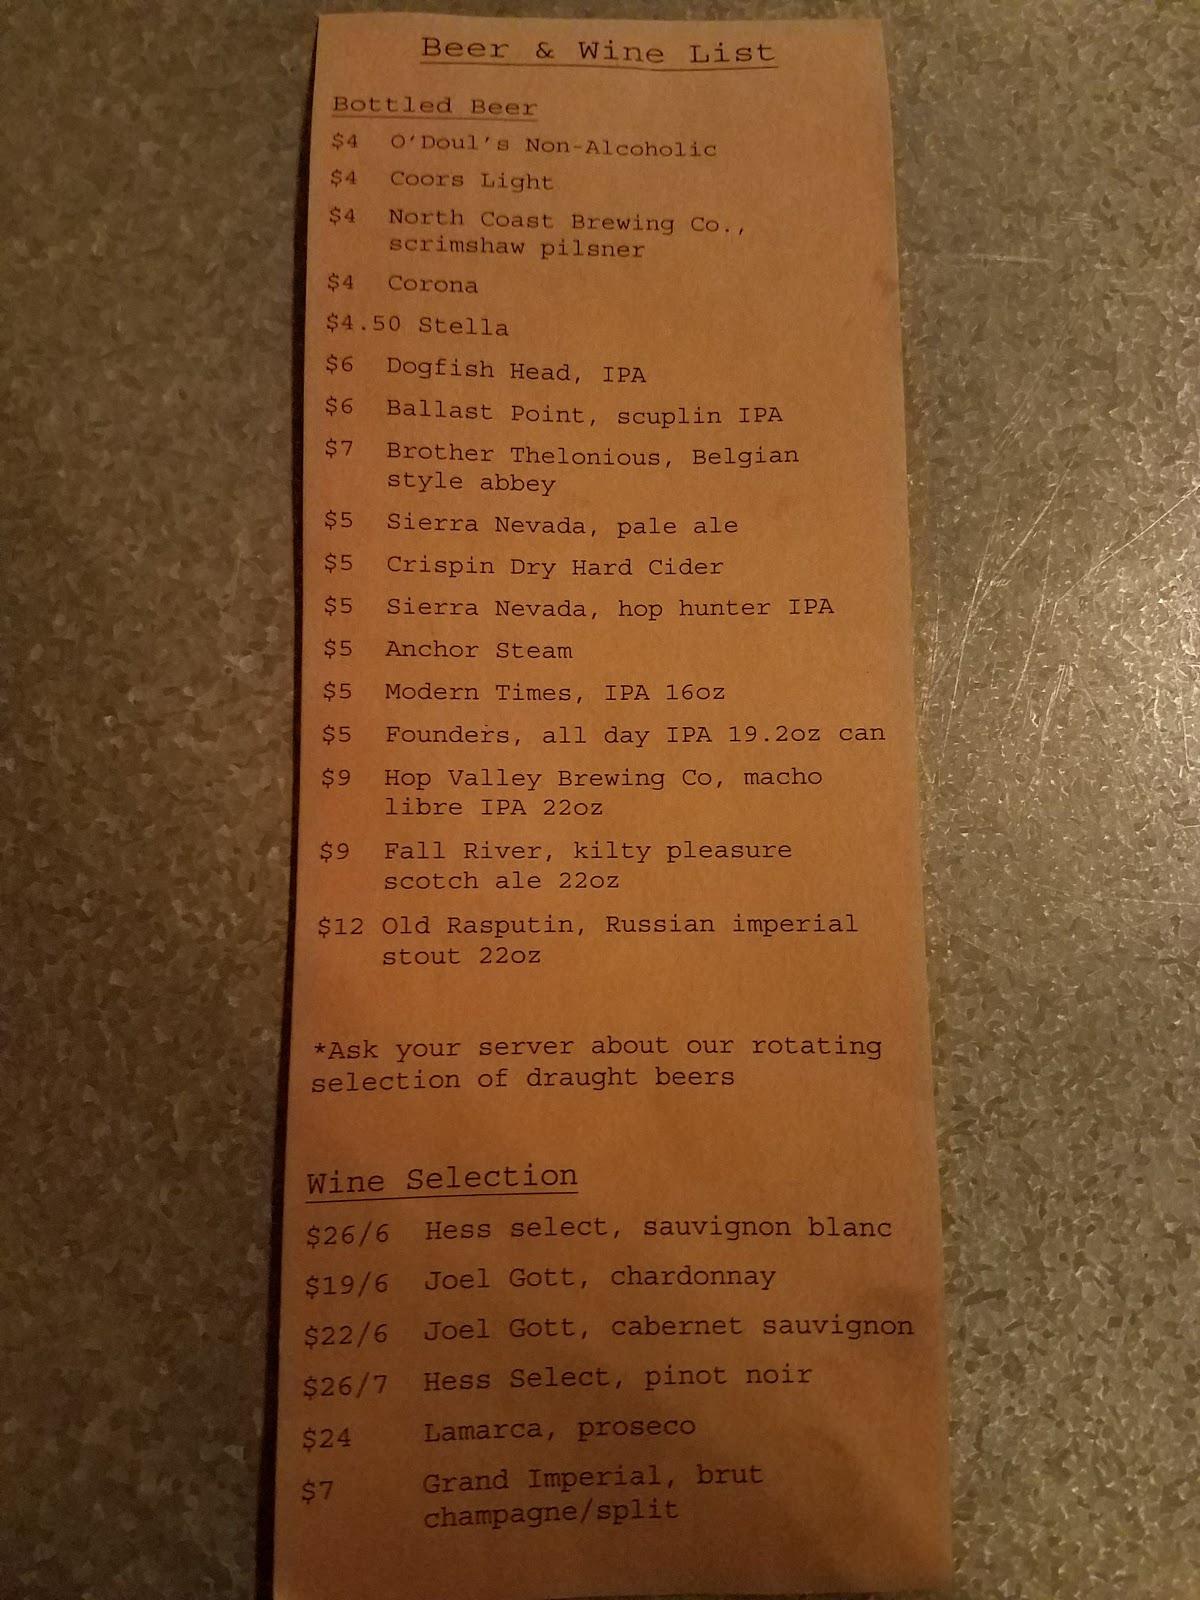 Beer & Wine List
Bottled Beer
$4 O'Doul's Non-Alcoholic
$4 Coors Light
$4 North Coast Brewing Co.,
scrimshaw pilsner
$4 Corona
$4.50 Stella
$6 Dogfish Head, IPA
$6 Ballast Point, scuplin IPA
$7 Brother Thelonious, Belgian
style abbey
$5 Sierra Nevada, pale ale
$5 Crispin Dry Hard Cider
$5 Sierra Nevada, hop hunter IPA
$5 Anchor Steam
$5 Modern Times, IPA 16oz
$5 Founders, all day IPA 19.2oz can
$9 Hop Valley Brewing Co, macho
libre IPA 22oz
$9 Fall River, kilty pleasure
scotch ale 22oz
$12 Old Rasputin, Russian imperial
stout 22oz
*Ask your server about our rotating
selection of draught beers
Wine Selection
$26/6 Hess select, sauvignon blanc
$19/6 Joel Gott, chardonnay
$22/6 Joel Gott, cabernet sauvignon
$26/7 Hess Select, pinot noir
$24 Lamarca, proseco
$7 Grand Imperial, brut
champagne/split